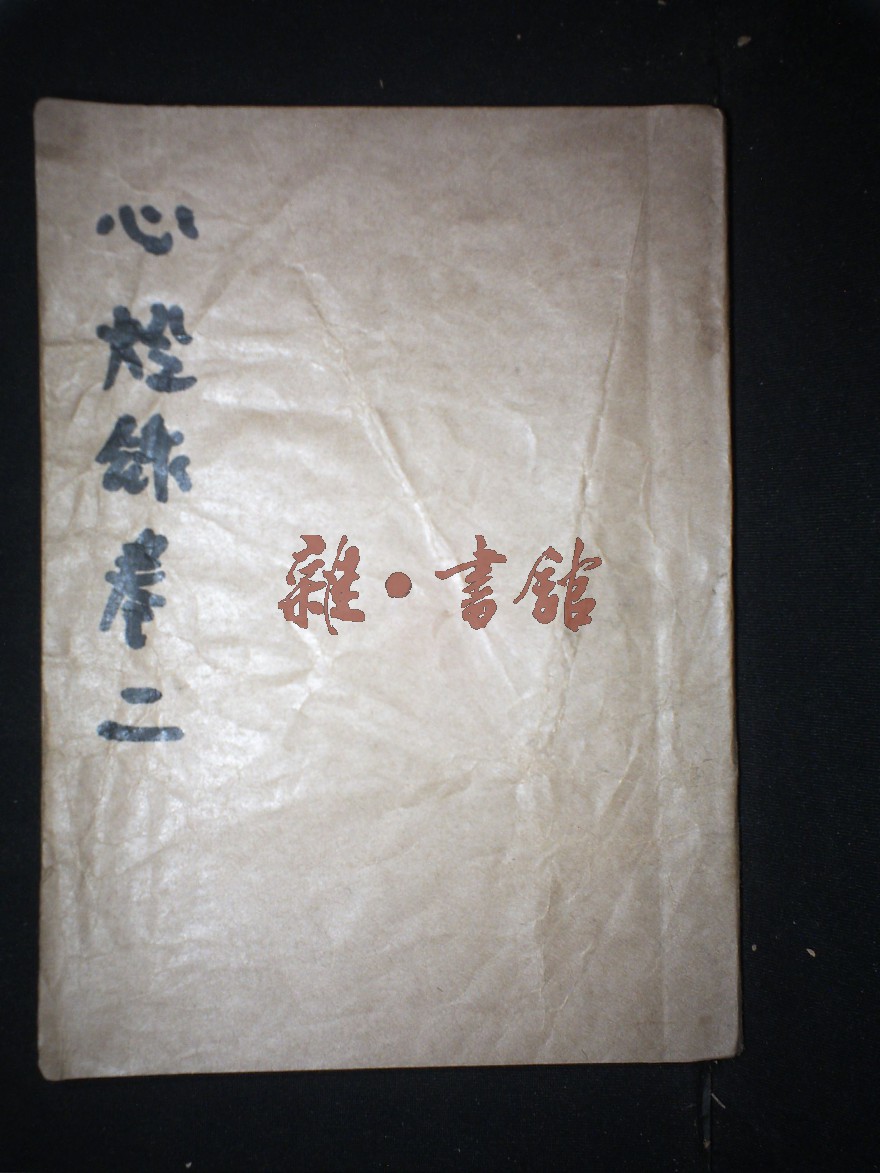 心燈錄卷二
雜·書館